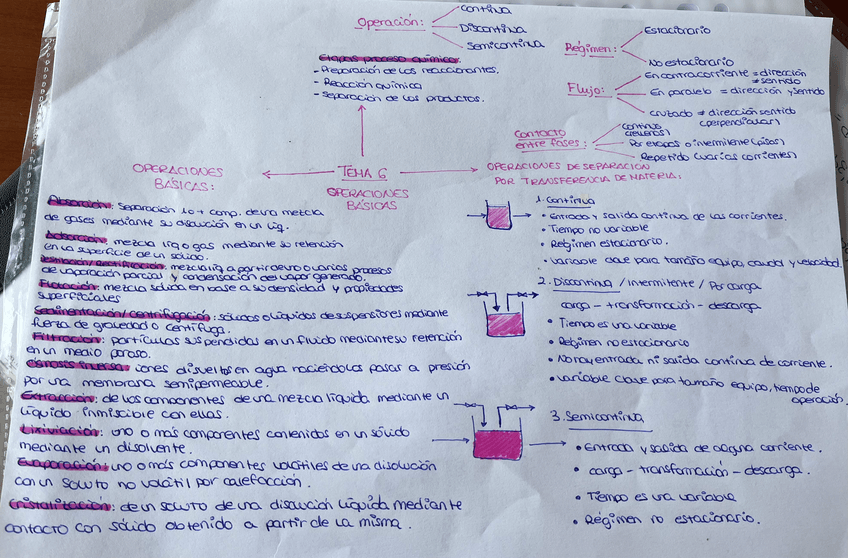 Operación:
Continua
Discontinua
Semicontinua
Régimen:
Estacionario
No estacionario
Flujo:
En contracorriente = dirección
≠ sentido
En paralelo = dirección y sentido
cruzado ≠ dirección sentido
(perpendicular)
Contacto
entre fases:
Continuo
(rellenos)
Por etapas o intermitente (pisos)
Repetido (varias corrientes)
Etapas proceso químico:
- Preparación de los reaccionantes.
- Reacción química
- Separación de los productos.
TEMA 6
OPERACIONES
BÁSICAS
OPERACIONES
BÁSICAS:
Absorción: separación 1 o + comp. de una mezcla
de gases mediante su disolución en un líq.
Adsorción: mezcla líq o gas mediante su retención
en la superficie de un sólido.
Destilación/Rectificación: mezcla líq a partir de uno o varios procesos
de vaporación parcial y condensación del vapor generado.
Flotación: mezcla sólida en base a su densidad y propiedades
superficiales
Sedimentación/centrifugación: sólidos o líquidos de suspensiones mediante
fuerza de gravedad o centrífuga.
Filtración: partículas suspendidas en un fluido mediante su retención
en un medio poroso.
Osmosis inversa: iones disueltos en agua haciéndolos pasar a presión
por una membrana semipermeable.
Extracción: de los componentes de una mezcla líquida mediante un
líquido inmiscible con ellas.
Lixiviación: uno o más componentes contenidos en un sólido
mediante un disolvente.
Evaporación: uno o más componentes volátiles de una disolución
con un soluto no volátil por calefacción.
Cristalización: de un soluto de una disolución líquida mediante
contacto con sólido obtenido a partir de la misma.
OPERACIONES DE SEPARACIÓN
POR TRANSFERENCIA DE MATERIA:
1. Continua
• Entrada y salida continua de las corrientes.
• Tiempo no variable
• Régimen estacionario.
• variable clave para tamaño equipo, caudal y velocidad.
2. Discontinua / Intermitente / Por carga
carga - transformación - descarga
• Tiempo es una variable
• Régimen no estacionario
• No hay entrada ni salida continua de corriente.
• variable clave para tamaño equipo, tiempo de
operación.
3. Semicontinua
• Entrada y salida de alguna corriente.
• carga - transformación - descarga.
• Tiempo es una variable
• Régimen no estacionario.